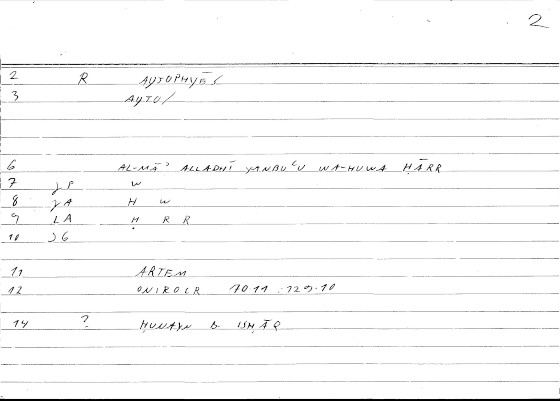 2
2 R AYTOPHYĒS/
3 AYTO/
6 AL-MĀʾ ALLADHĪ YANBUʿU WA-HUWA ḤĀRR
7 W
8 H W
9 LA Ḥ R R
10
11 ARTEM
12 ONIROCR 129.10
14 ? ḤUNAYN B ISḤĀQ